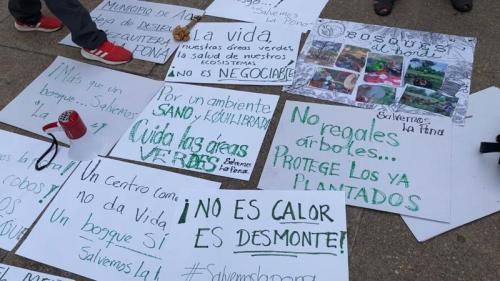 MUNICIPIO DE
deja de
EZQUITERA
PONA
Salvemos
La Pona
La VIDA
nuestras áreas verdes
la salud de nuestros
ECOSISTEMAS
¡NO ES NEGOCIABLE
Bosques
Salvemos
La Pona
¡Más que un
bosque... Salvemos
"La
Por un ambiente
SANO y EQUILIBRADO
Cuida las áreas
VERDES
Salvemos
La Pona
No regales
árboles...
PROTEGE LOS YA
PLANTADOS
Salvemos
La Pona
Un centro
no da vida
Un bosque SÍ
Salvemos la
¡NO ES CALOR
ES DESMONTE!
#SalvemoslaPona